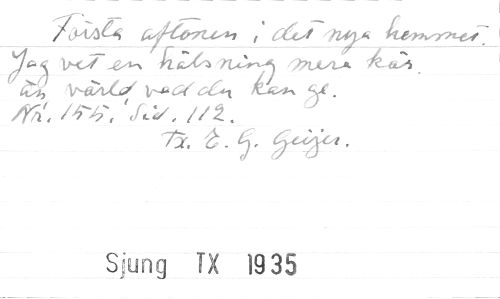 Första aftonen i det nya hemmet.
Jag vet en hälsning mera kär
än värld vad du kan ge.
Nr. 155. Sid. 112.
Tx. E. G. Geijer.
Sjung TX 1935